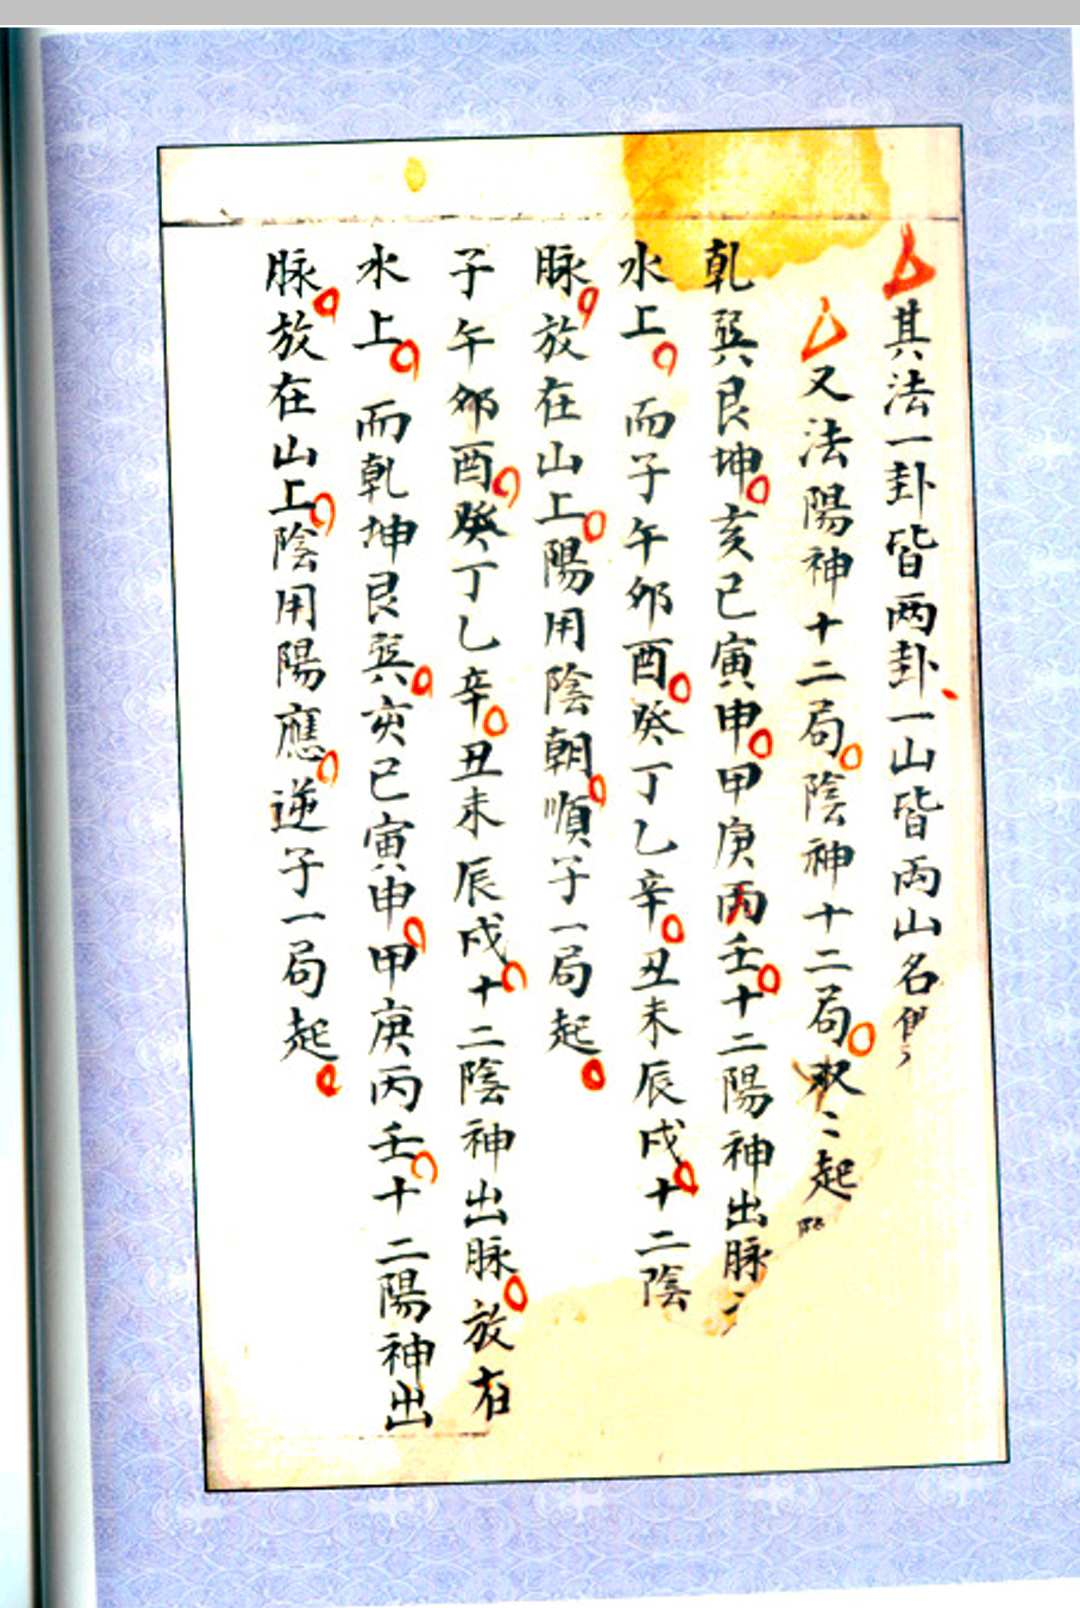 其法一卦皆两卦一山皆両山名
又法陽神十二局陰神十二局起
乹巽艮坤亥巳寅申甲庚丙壬十二陽神出脉
水上而子午夘酉癸丁乙辛丑未辰戌十二陰
脉放在山上陽用陰朝順子一局起
子午夘酉癸丁乙辛丑未辰戌十二陰神出脉放在
水上而乹坤艮巽亥巳寅申甲庚丙壬十二陽神出
脉放在山上陰用陽應逆子一局起